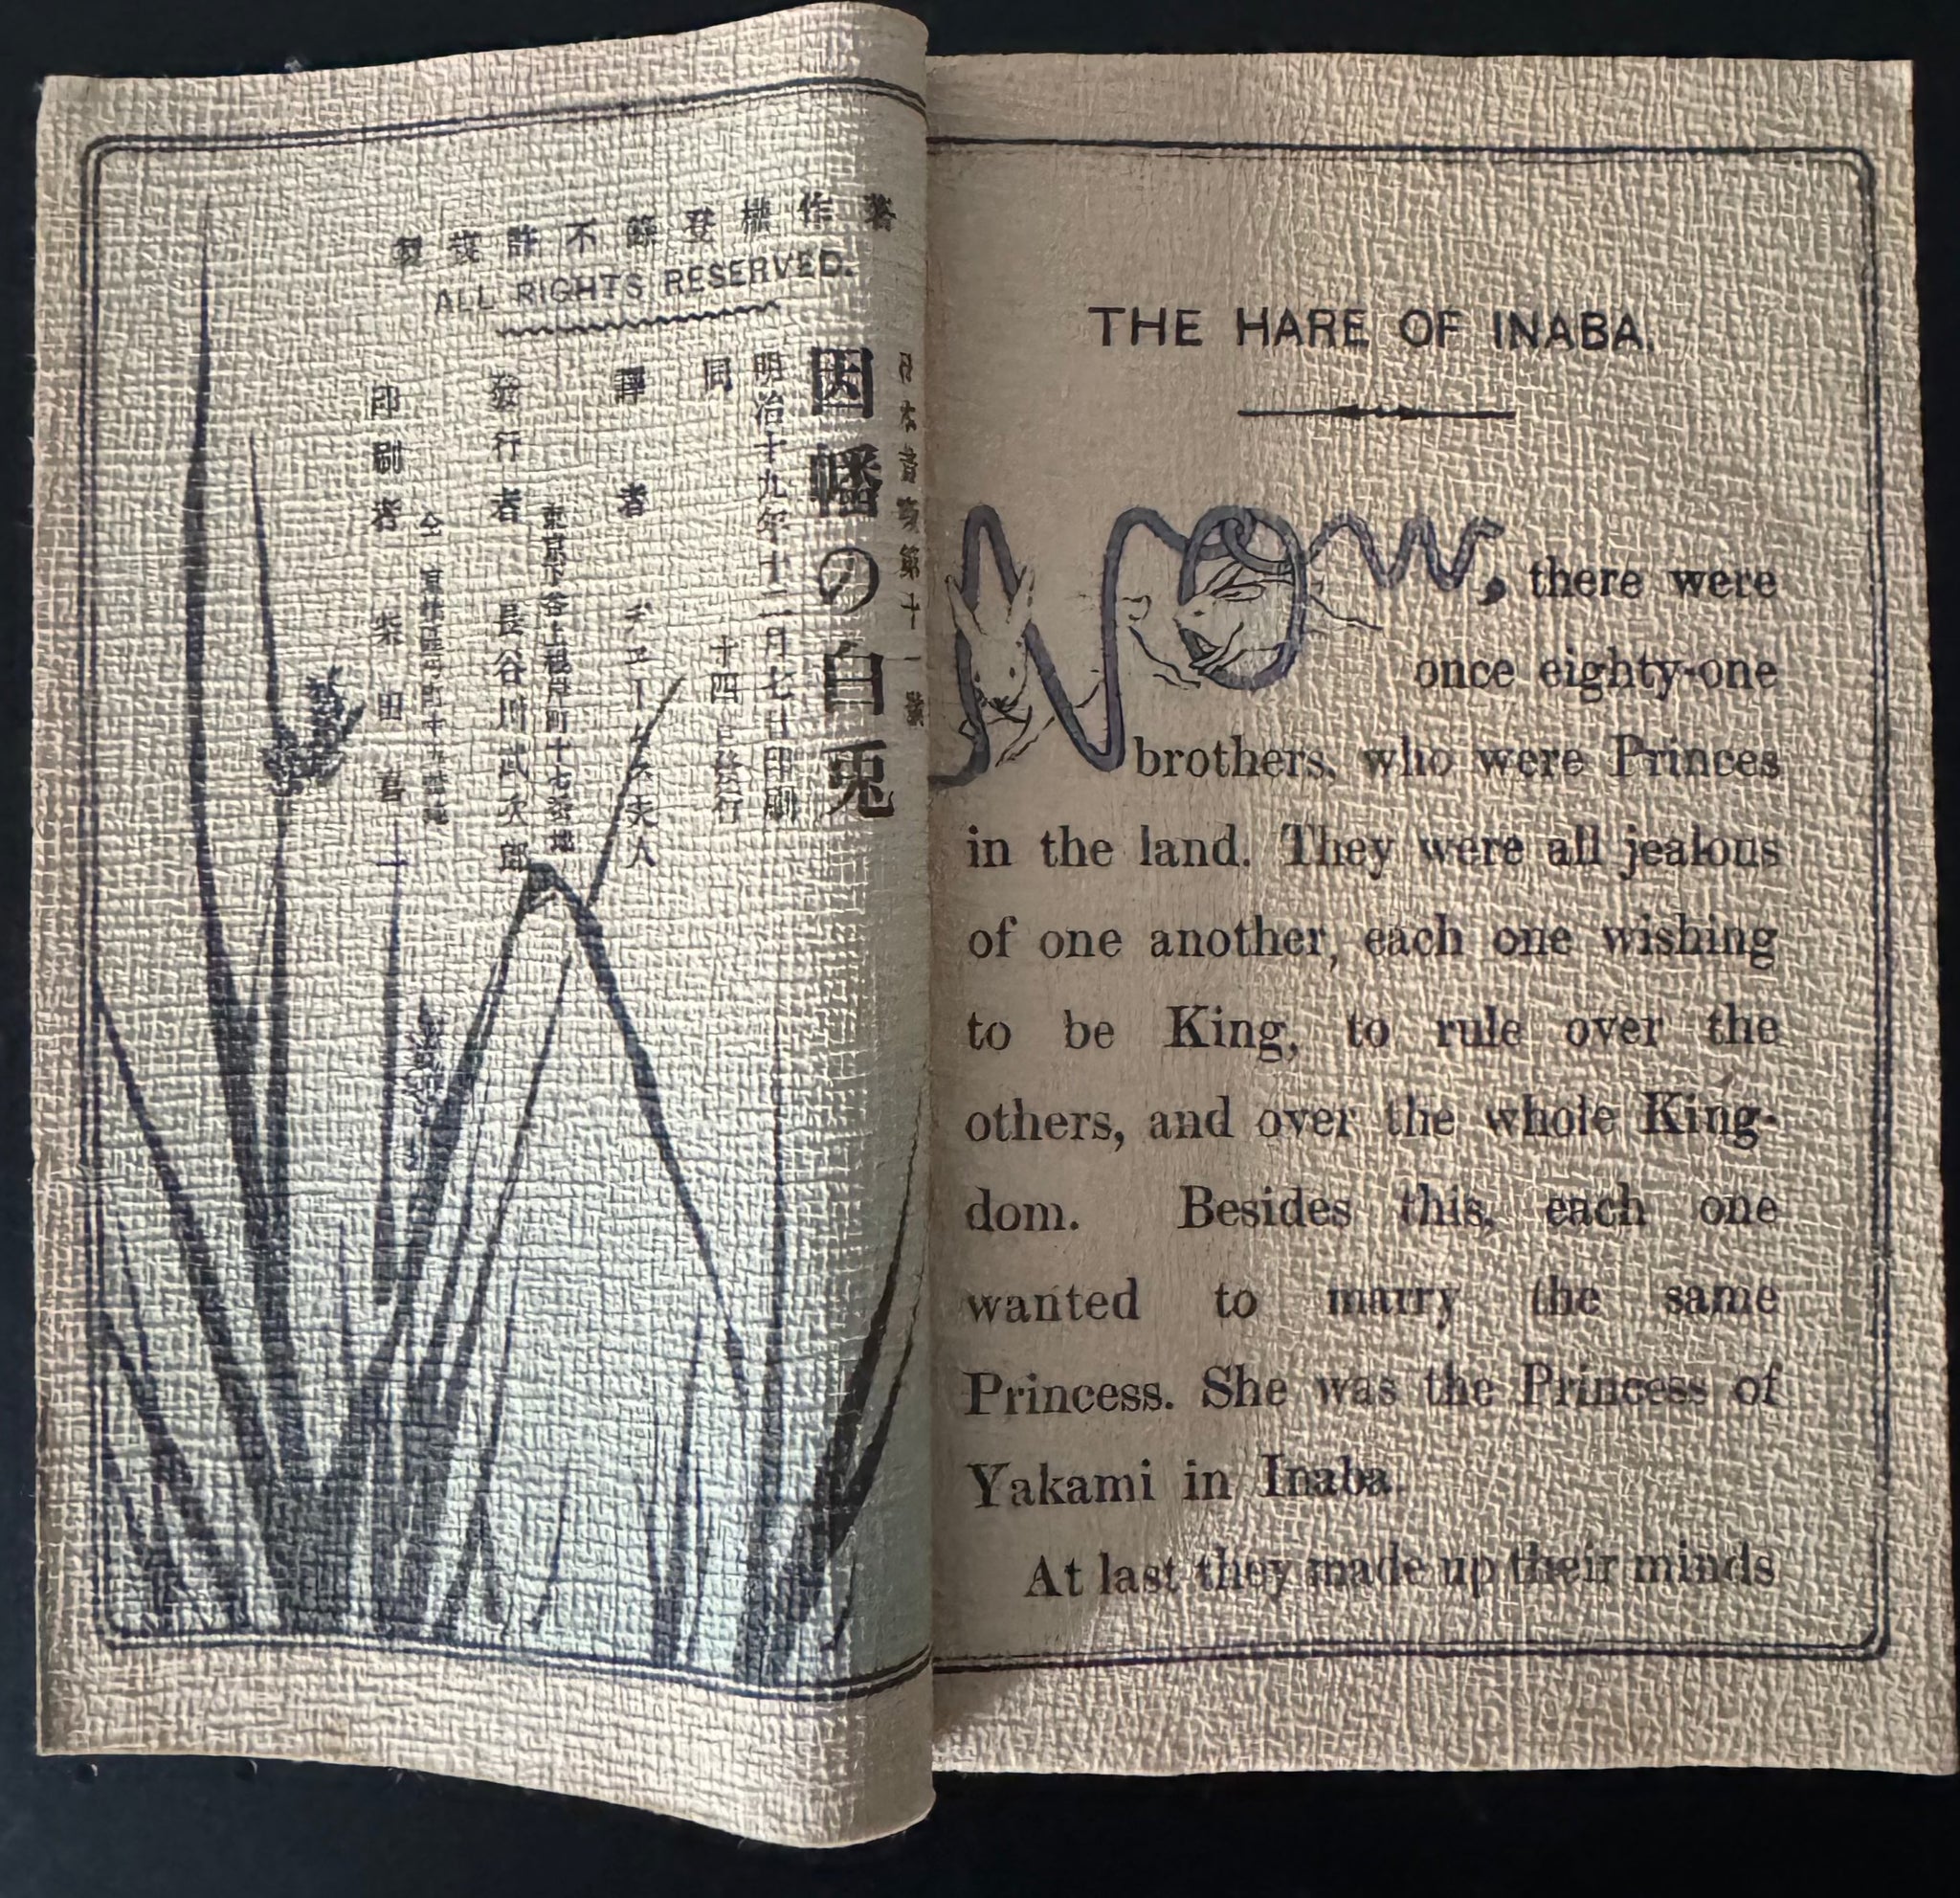 著作權登錄不許飜製
ALL RIGHTS RESERVED.
日本昔噺第十一號
因幡の白兎
明治十九年十二月七日印刷
同 十四日發行
譯者 チヱームス夫人
東京下谷上根岸町十七番地
發行者 長谷川武次郎
仝 十九番地
印刷者 柴田喜一
THE HARE OF INABA.
Now, there were
once eighty-one
brothers, who were Princes
in the land. They were all jealous
of one another, each one wishing
to be King, to rule over the
others, and over the whole King-
dom. Besides this, each one
wanted to marry the same
Princess. She was the Princess of
Yakami in Inaba.
At last they made up their minds